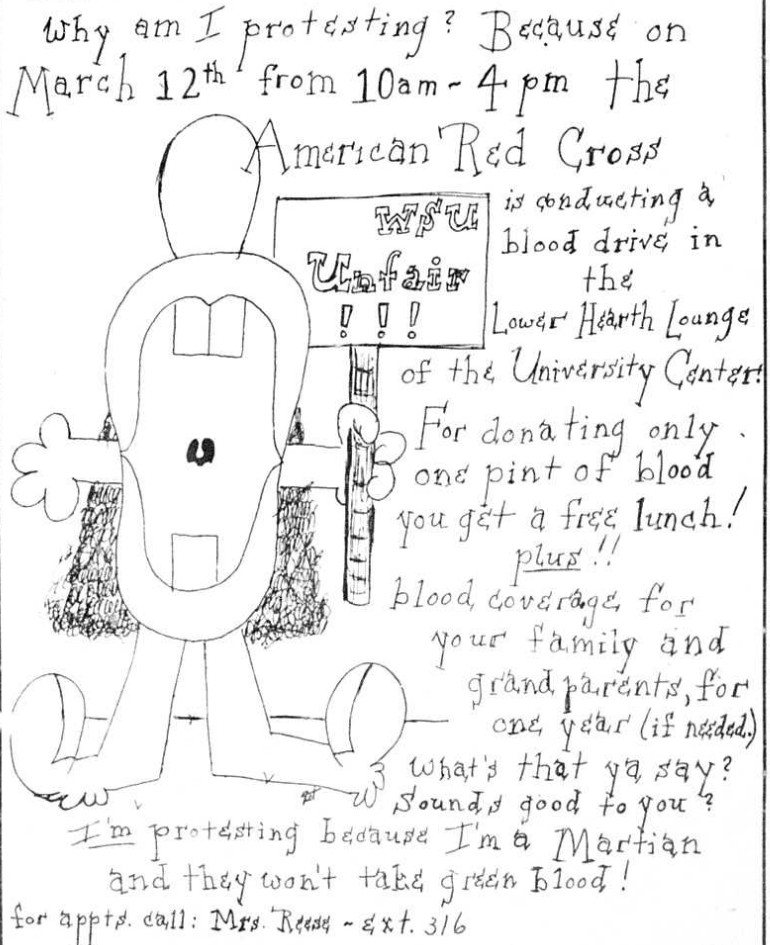 Why am I protesting? Because on
March 12th from 10am - 4 pm the
American Red Cross
is conducting a
blood drive in
the
Lower Hearth Lounge
of the University Center!
WSU
Unfair
!!!
For donating only
one pint of blood
you get a free lunch!
plus!!
blood coverage for
your family and
grandparents, for
one year (if needed.)
What's that ya say?
Sounds good to you?
I'm protesting because I'm a Martian
and they won't take green blood!
for appts. call: Mrs. Reese ~ ext. 316